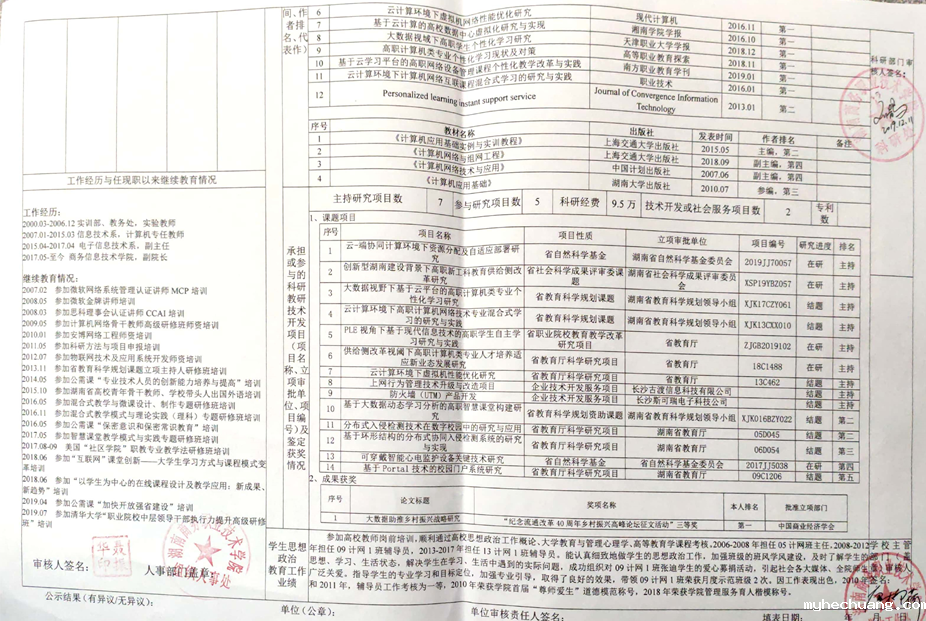 间、作者排名、代表作）
6 云计算环境下虚拟机网络性能优化研究 现代计算机 2016.11 第一
7 基于云计算的高校数据中心虚拟化研究与实现 湘南学院学报 2016.10 第一
8 大数据视域下高职学生个性化学习研究 天津职业大学学报 2018.12 第一
9 高职计算机类专业个性化学习现状及对策 高等职业教育探索 2018.11 第一
10 基于云学习平台的高职网络设备管理课程个性化教学改革与实践 南方职业教育学刊 2019.01 第一
11 云计算环境下计算机网络互联课程混合式学习的研究与实践 职业技术 2016.01 第一
12 Personalized learning instant support service Journal of Convergence Information Technology 2013.01 第二
科研部门审核人签名：
序号 教材名称 出版社 发表时间 作者排名 备注
1 《计算机应用基础实例与实训教程》 上海交通大学出版社 2015.05 主编，第二
2 《计算机网络与组网工程》 上海交通大学出版社 2018.09 副主编，第四
3 《计算机网络技术与应用》 中国计划出版社 2007.06 副主编，第四
4 《计算机应用基础》 湖南大学出版社 2010.07 参编，第三
工作经历与任现职以来继续教育情况
工作经历：
2000.03-2006.12 实训部、教务处，实验教师
2007.01-2015.03 信息技术系，计算机专任教师
2015.04-2017.04 电子信息技术系，副主任
2017.05-至今 商务信息技术学院，副院长
继续教育情况：
2007.02 参加微软网络系统管理认证讲师 MCP 培训
2008.05 参加微软金牌讲师培训
2008.03 参加思科理事会认证讲师 CCAI 培训
2009.05 参加计算机网络骨干教师高级研修班师资培训
2010.01 参加安博网络工程师资培训
2011.05 参加科研方法与项目申报培训
2012.07 参加物联网技术及应用系统开发师资培训
2013.11 参加省教育科学规划课题立项主持人研修班培训
2014.05 参加公需课“专业技术人员的创新能力培养与提高”培训
2015.10 参加湖南省高校青年骨干教师、学校带头人出国外语培训
2016.05 参加混合式教学与微课设计、制作专题研修班培训
2016.11 参加混合式教学模式与理论实践（理科）专题研修班培训
2016.05 参加公需课“保密意识和保密常识教育”培训
2017.05 参加智慧课堂教学模式与实践专题研修班培训
2017.08-09 美国“社区学院”职教专业教学法研修班培训
2018.06 参加“互联网”课堂创新——大学生学习方式与课程模式变革培训
2018.06 参加“以学生为中心的在线课程设计及教学应用：新成果、新趋势”培训
2019.04 参加公需课“加快开放强省建设”培训
2019.07 参加清华大学“职业院校中层领导干部执行力提升高级研修班”培训
审核人签名：
人事部门盖章：
承担或参与的科研教研技术开发项目（项目名称、立项审批单位、项目编号）及鉴定获奖情况
主持研究项目数 7 参与研究项目数 5 科研经费 9.5 万 技术开发或社会服务项目数 2 专利数
1、课题项目
序号 项目名称 项目性质 立项审批单位 项目编号 研究进度 排名
1 云-端协同计算环境下资源分配及自适应部署研究 省自然科学基金 湖南省自然科学基金委员会 2019JJ70057 在研 主持
2 创新型湖南建设背景下高职新工科教育供给侧改革研究 省社会科学成果评审委课题 湖南省社会科学成果评审委员会 XSP19YBZ057 在研 主持
3 大数据视野下基于云平台的高职计算机类专业个性化学习研究 省教育科学规划课题 湖南省教育科学规划领导小组 XJK17CZY061 结题 主持
4 云计算环境下高职计算机网络技术专业混合式学习的研究与实践 省教育科学规划课题 湖南省教育科学规划领导小组 XJK13CXX010 结题 主持
5 PLE 视角下基于现代信息技术的高职学生自主学习研究与实践 省职业院校教育教学改革研究项目 省教育厅 ZJGB2019102 在研 主持
6 供给侧改革视阈下高职计算机类专业人才培养适应新业态发展研究 省教育厅科学研究项目 省教育厅 18C1488 在研 主持
7 云计算环境下虚拟机性能优化研究 省教育厅科学研究项目 省教育厅 13C462 结题 主持
8 上网行为管理技术升级与改造项目 企业技术开发服务项目 长沙古渡信息科技有限公司 结题 主持
9 防火墙（UTM）产品开发 企业技术开发服务项目 长沙斯可瑞电子科技公司 结题 主持
10 基于大数据动态学习分析的高职智慧课堂构建研究 省教育科学规划资助课题 湖南省教育科学规划领导小组 XJK016BZY022 结题 第二
11 分布式入侵检测技术在数字校园中的研究与应用 省教育厅科学研究项目 湖南省教育厅 05D045 结题 第二
12 基于环形结构的分布式协同入侵检测系统的研究与实现 省教育厅科学研究项目 湖南省教育厅 06D054 结题 第三
13 可穿戴智能心电监护设备关键技术研究 省自然科学基金 省自然科学基金委员会 2017JJ5038 在研 第四
14 基于 Portal 技术的校园门户系统研究 省教育厅科学研究项目 湖南省教育厅 09C1206 结题 第五
2、成果获奖
序号 论文标题 奖项名称 本人排名 批准立项部门
1 大数据助推乡村振兴战略研究 “纪念流通改革 40 周年乡村振兴高峰论坛征文活动”三等奖 第一 中国商业经济学会
学生思想政治教育工作业绩
参加高校教师岗前培训，顺利通过高校思想政治工作概论、大学教育与管理心理学、高等教育学课程考核，2006-2008 年担任 05 计网班主任，2008-2012
年担任 09 计网 1 班辅导员，2013-2017 年担任 13 计网 1 班辅导员，能认真细致地做学生的思想政治工作，加强班级的班风学风建设，及时了解学生的
思想、学习、生活状态，解决学生在学习、生活中遇到的实际问题，成功组织对 09 计网 1 班张迪学生的爱心募捐活动，引起社会各大媒体、全院师生
广泛关爱。指导学生的专业学习和目标定位，加强专业引导，取得了良好的效果，带领 09 计网 1 班荣获月度示范班级 2 次，因工作表现出色，2010 年
和 2011 年，辅导员工作考核为一等，2010 年荣获学院首届“尊师爱生”道德模范称号、2018 年荣获学院管理服务育人楷模称号。
学校主管
审核人
签名：
公示结果（有异议/无异议）：
单位（公章）：
单位审核责任人签名：
填表日期： 年 月 日
myhechuang.com